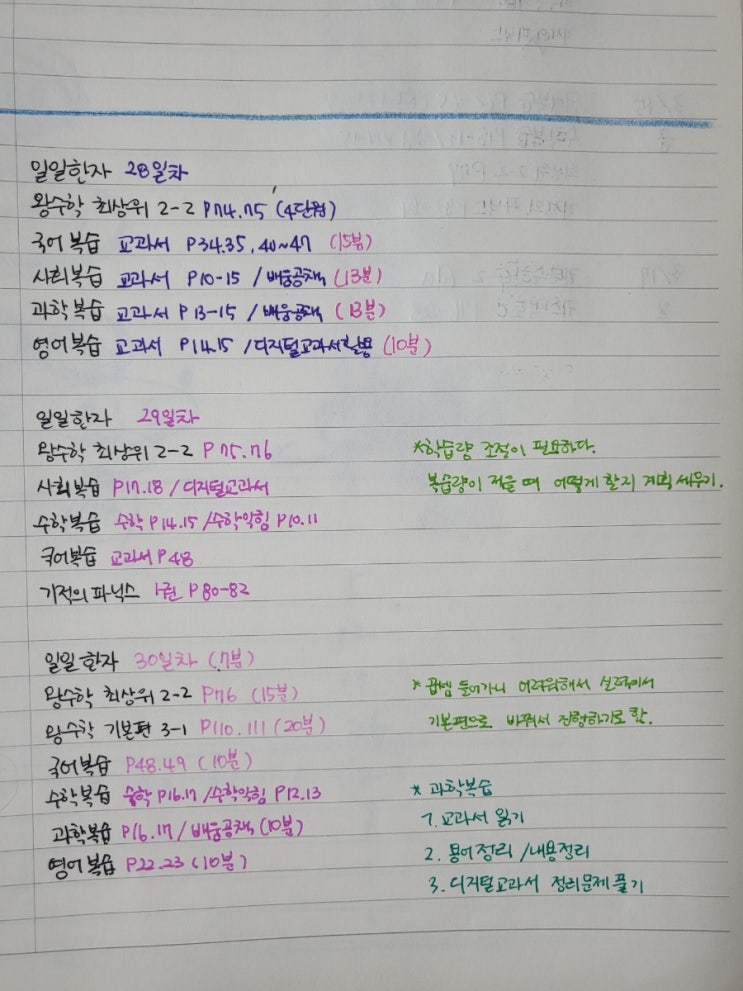 일일한자 28일차
왕수학 최상위 2-2 P74.75 (4단원)
국어복습 교과서 P34.35, 40~47 (15분)
사회복습 교과서 P10-15 / 배움공책 (13분)
과학복습 교과서 P13-15 / 배움공책 (13분)
영어복습 교과서 P14.15 / 디지털교과서활용 (10분)
일일한자 29일차
왕수학 최상위 2-2 P75.76
*학습량 조절이 필요하다.
사회복습 P17.18 / 디지털교과서
복습량이 적을 때 어떻게 할지 계획 세우기.
수학복습 수학 P14.15 / 수학익힘 P10.11
국어복습 교과서 P48
기적의 파닉스 1권 P80-82
일일한자 30일차 (7분)
왕수학 최상위 2-2 P76 (15분)
* 곱셈 들어가니 어려워해서
왕수학 기본편 3-1 P110.111 (20분)
기본편으로 바꿔서 진행하기로 함.
국어복습 P48.49 (10분)
수학복습 수학 P16.17 / 수학익힘 P12.13
* 과학복습
과학복습 P16.17 / 배움공책 (10분)
1. 교과서 읽기
영어복습 P22.23 (10분)
2. 용어정리 / 내용정리
3. 디지털교과서 정리문제 풀기